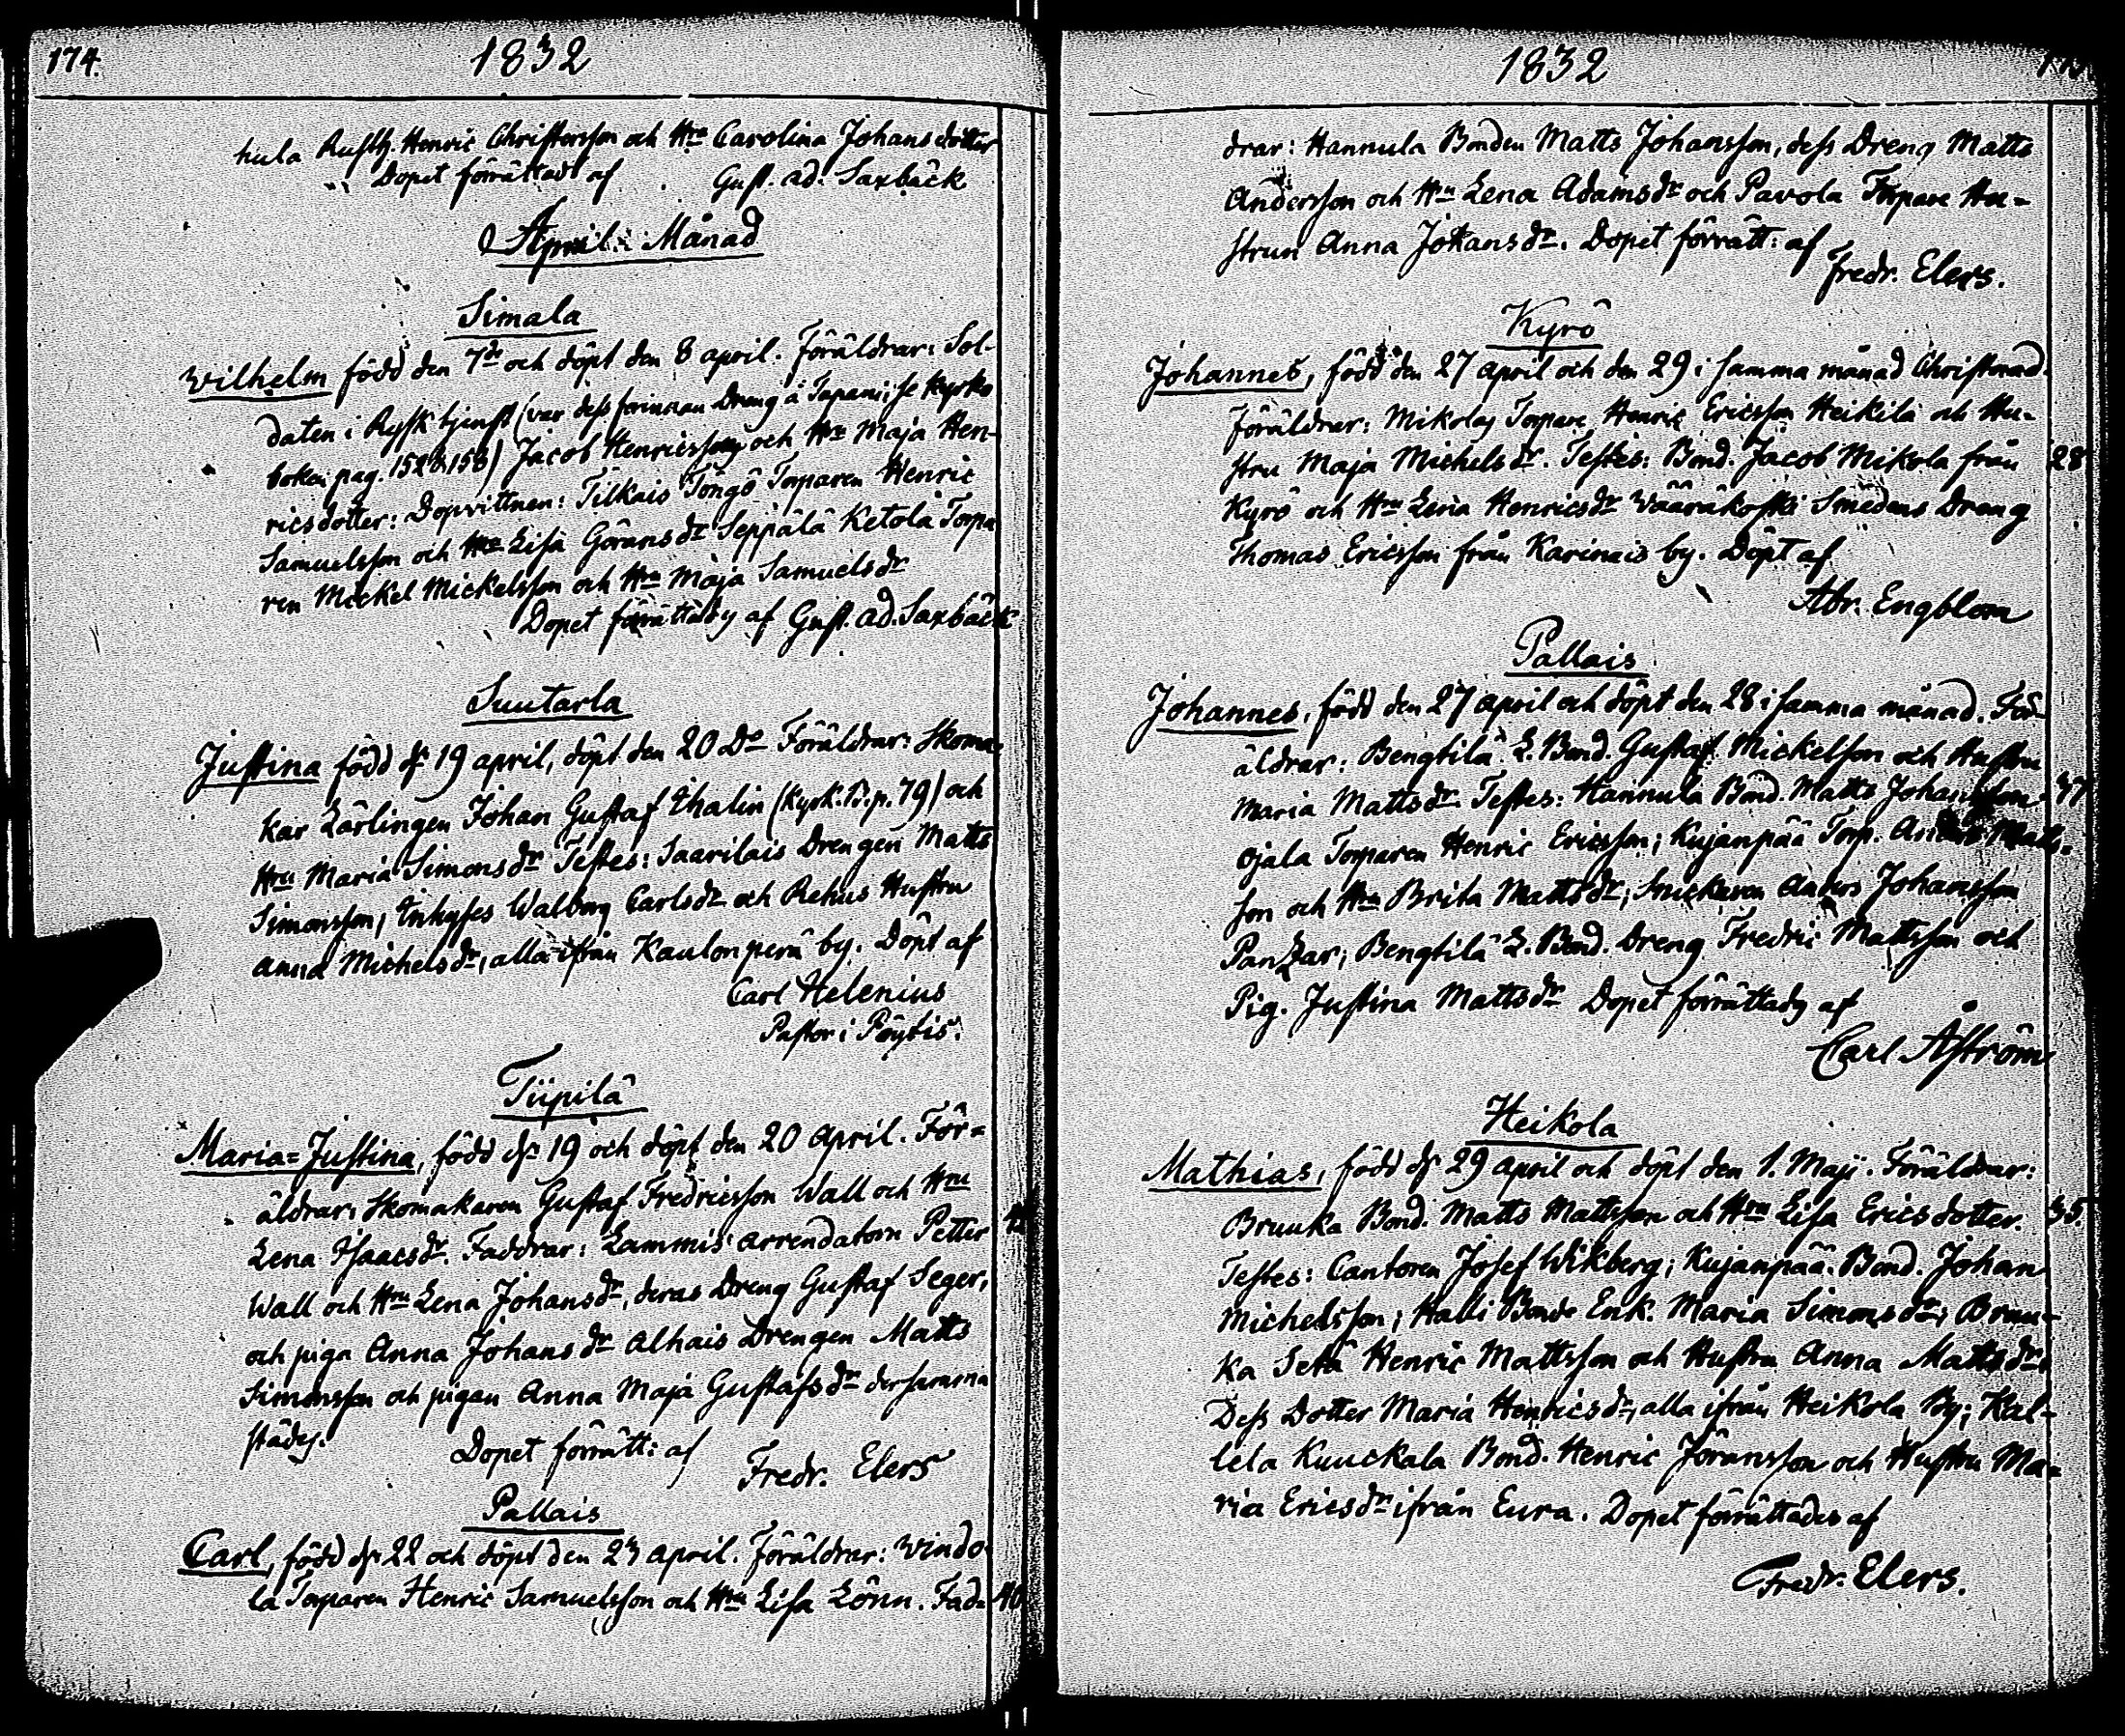 174.
1832
hula Rusth. Henric Christersson och Hru Carolina Johansdotter
Dopet förrättadt af Gust. Ad. Saxbäck
April Månad
Simala
Wilhelm född den 7de och döpt den 8 april. Föräldrar: Sol-
daten i Rysk tjenst (var dess förinnan Dreng å Tapani; se Kyrko
boken pag. 152 & 158) Jacob Henricsson och Hru Maja Hen-
ricsdotter: Dopvittnen: Tilkais Töngö Torparen Henric
Samuelsson och Hru Lisa Göransdr Seppälä Ketola Torpa
ren Mickel Mickelsson och Hru Maja Samuelsdr
Dopet förrättades af Gust. Ad. Saxbäck
Suutarla
Justina född d. 19 april, döpt den 20 Do Föräldrar: Skoma-
kar Lärlingen Johan Gustaf Thalin (Kyrk. B. p. 79) och
Hru Maria Simonsdr Testes: Saarilais Drengen Matts
Simonsson, Walborg Carlsdr och Rehus Hustru
Anna Michelsdr, alla ifrån Kaulonperä by. Döpt af
Carl Helenius
Pastor i Pöytis.
Tiipilä
Maria-Justina, född d. 19 och döpt den 20 April. För-
äldrar: Skomakaren Gustaf Fredricsson Wall och Hru
Lena Isaacsdr. Faddrar: Lammis arrendatorn Petter
Wall och Hru Lena Johansdr, deras Dreng Gustaf Seger,
och piga Anna Johansdr Alhais Drengen Matts
Simonsson och pigan Anna Maja Gustafsdr dersamma
städes. Dopet förrätt: af
Fredr. Elers
Pallais
Carl, född d. 22 och döpt den 23 april. Föräldrar: Windo-
la Torparen Henric Samuelsson och Hru Lisa Lönn. Fad- 40
1832
drar: Hannula Bonden Matts Johansson, dess Dreng Matts
Andersson och Hru Lena Adamsdr och Pavola Torpare Hu-
strun Anna Johansdr. Dopet förrätt: af
Fredr. Elers.
Kyrö
Johannes, född den 27 april och den 29 i samma månad Christnad.
Föräldrar: Mikolas Torpare Henric Ericsson Heikilä och Hu-
stru Maja Michelsdr. Testes: Bond. Jacob Mikola från 28
Kyrö och Hru Lena Henricsdr Wääräkoski Smedens Dreng
Thomas Ericsson från Karinais by. Döpt af
Abr. Engblom
Pallais
Johannes, född den 27 april och döpt den 28 i samma månad. För-
äldrar: Bengtilä L. Bond. Gustaf Mickelson och Hustru
Maria Mattsdr. Testes: Hannula Bond. Matts Johansson 37
Ojala Torparen Henric Ericsson; Kujanpää Torp. Anders Matts-
son och Hru Brita Mattsdr; Snickaren Anders Johansson
Panzar; Bengtilä L. Bond. Dreng Fredric Mattsson och
Pig. Justina Mattsdr Dopet förrättades af
Carl Åström
Heikola
Mathias, född d. 29 april och döpt den 1. Maji. Föräldrar:
Bruuka Bond. Matts Mattsson och Hru Lisa Ericsdotter. 35.
Testes: Cantoren Josef Wikberg; Kujanpää Bond. Johan
Michelsson; Halli Bonde Enk. Maria Simonsdr; Bruu-
ka Setä Henric Mattsson och Hustru Anna Mattsdr
Dess Dotter Maria Henricsdr, alla ifrån Heikola By; Kal-
lela Kuuckala Bond. Henric Jöransson och Hustru Ma-
ria Ericsdr ifrån Eura. Dopet förrättades af
Fredr. Elers.